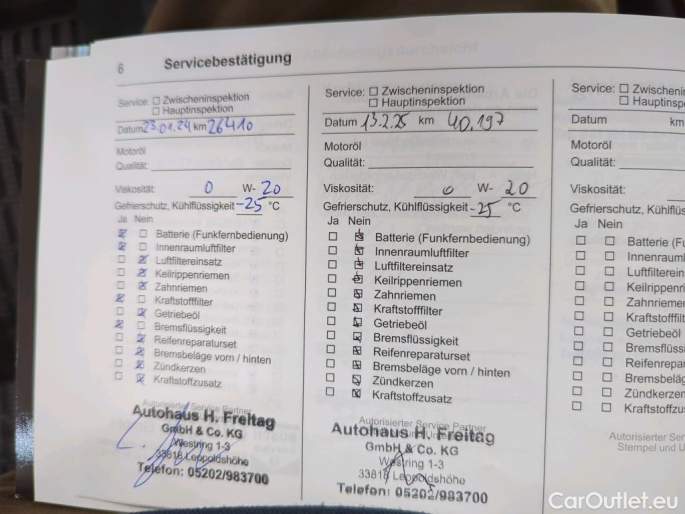 6 Servicebestätigung
Service: ☐ Zwischeninspektion
☐ Hauptinspektion
Datum 23.01.24 km 26410
Motoröl
Qualität:
Viskosität: 0 W- 20
Gefrierschutz, Kühlflüssigkeit -25 °C
Ja Nein
Batterie (Funkfernbedienung)
Innenraumluftfilter
Luftfiltereinsatz
Keilrippenriemen
Zahnriemen
Kraftstofffilter
Getriebeöl
Bremsflüssigkeit
Reifenreparaturset
Bremsbeläge vorn / hinten
Zündkerzen
Kraftstoffzusatz
Autorisierter Service Partner
Autohaus H. Freitag
GmbH & Co. KG
Westring 1-3
33818 Leopoldshöhe
Telefon: 05202/983700
Service: ☐ Zwischeninspektion
☐ Hauptinspektion
Datum 13.2.25 km 40.197
Motoröl
Qualität:
Viskosität: 0 W- 20
Gefrierschutz, Kühlflüssigkeit -25 °C
Ja Nein
Batterie (Funkfernbedienung)
Innenraumluftfilter
Luftfiltereinsatz
Keilrippenriemen
Zahnriemen
Kraftstofffilter
Getriebeöl
Bremsflüssigkeit
Reifenreparaturset
Bremsbeläge vorn / hinten
Zündkerzen
Kraftstoffzusatz
Autorisierter Service Partner
Autohaus H. Freitag
GmbH & Co. KG
Westring 1-3
33818 Leopoldshöhe
Telefon: 05202/983700
Service: ☐ Zwischenin
☐ Hauptinsp
Datum km
Motoröl
Qualität:
Viskosität:
Gefrierschutz, Kühlflüs
Ja Nein
Batterie (Fu
Innenraum
Luftfilterein
Keilrippenri
Zahnriemen
Kraftstofffilt
Getriebeöl
Bremsflüss
Reifenrepar
Bremsbeläg
Zündkerzen
Kraftstoffzu
Autorisierter Ser
Stempel und U
CarOutlet.eu